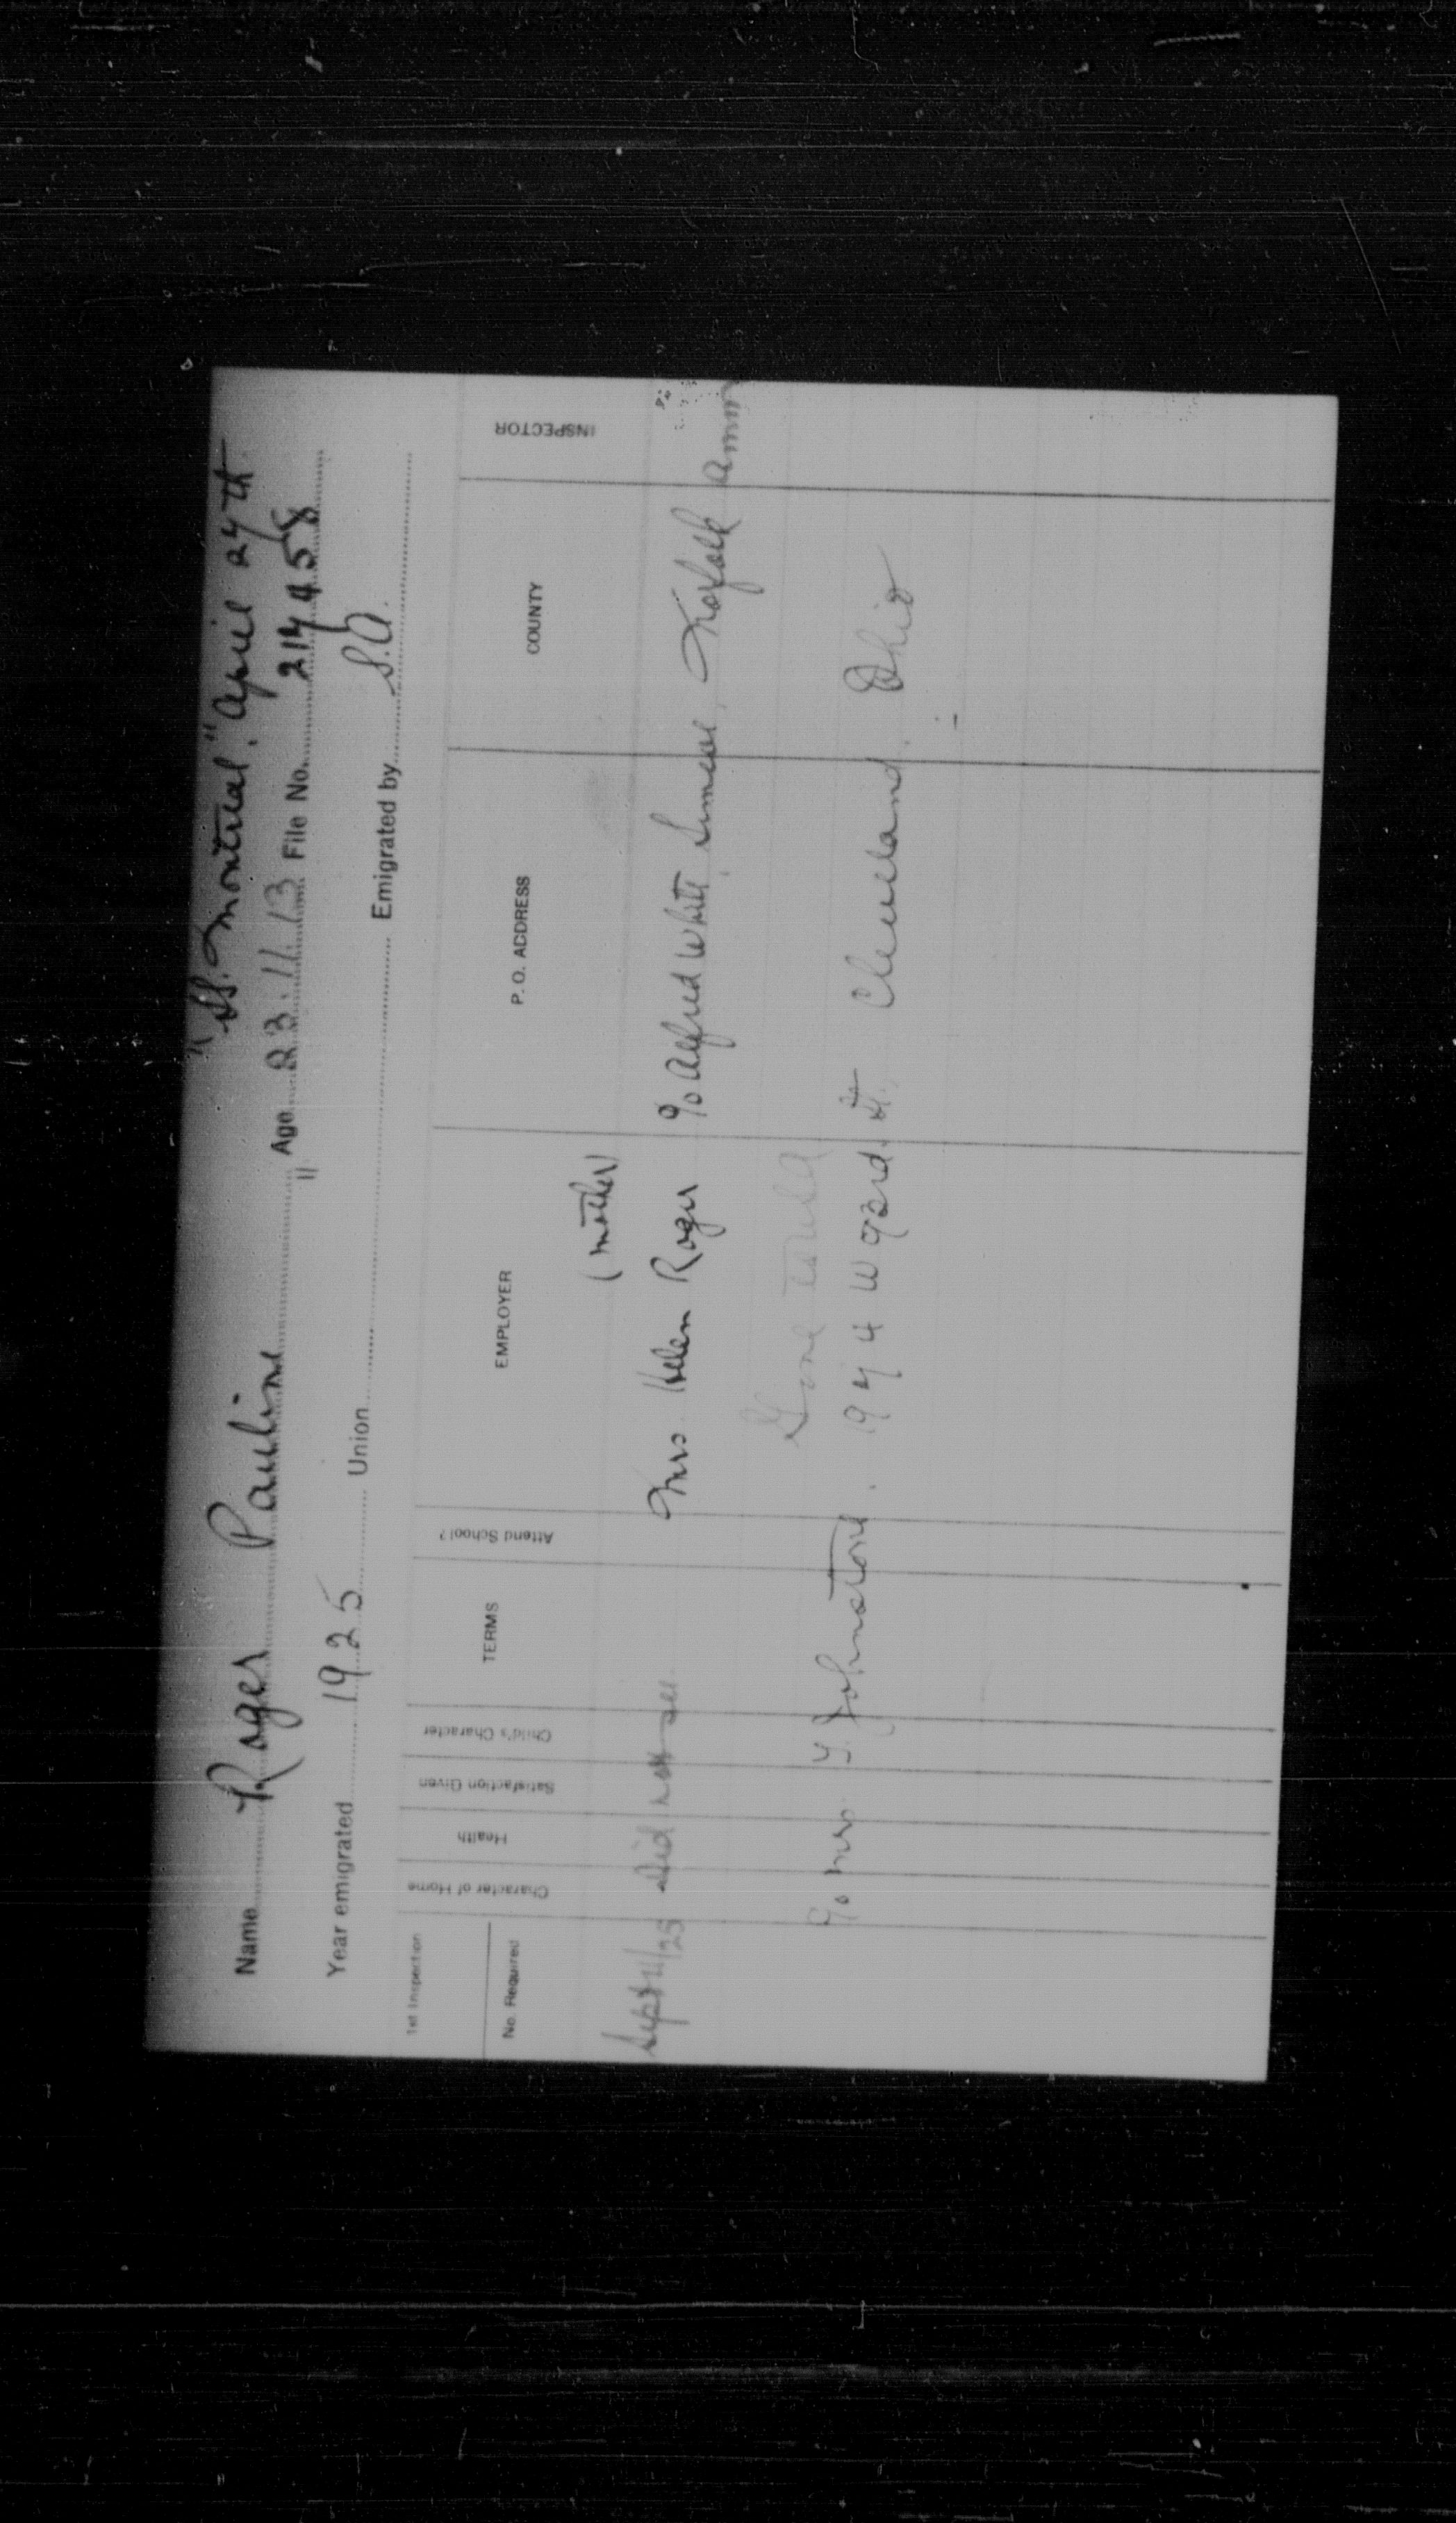 "SS. Montreal." April 27th
Name Roger Pauline Age 23.11.13 File No. 217458
11
Year emigrated 1925 Union Emigrated by S.A.
1st Inspection
No. Required
Character of Home
Health
Satisfaction Given
Child's Character
TERMS
Attend School?
EMPLOYER
P. O. ADDRESS
COUNTY
INSPECTOR
(mother)
Sept 11/25 Did not see Mrs. Helen Roger % Alfred White, Simcoe, Norfolk
Gone to
% Mrs. Y. Johnstone. 1974 W 93rd St. Cleveland. Ohio